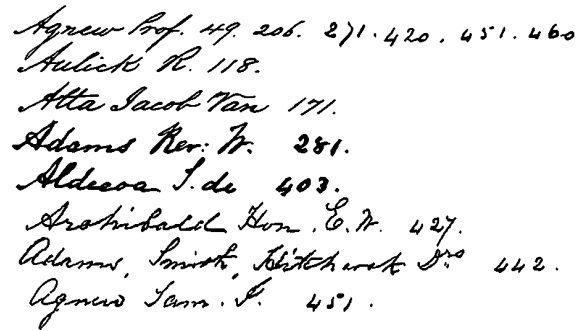 Agnew Prof. 49. 206. 271. 420. 451. 460
Aulick R. 118.
Atta Jacob Van 171.
Adams Rev: W. 281.
Aldecoa S. de 403.
Archibald Hon. E. W. 427.
Adams, Smith, Hitchcock Drs 442.
Agnew Sam. F. 451.